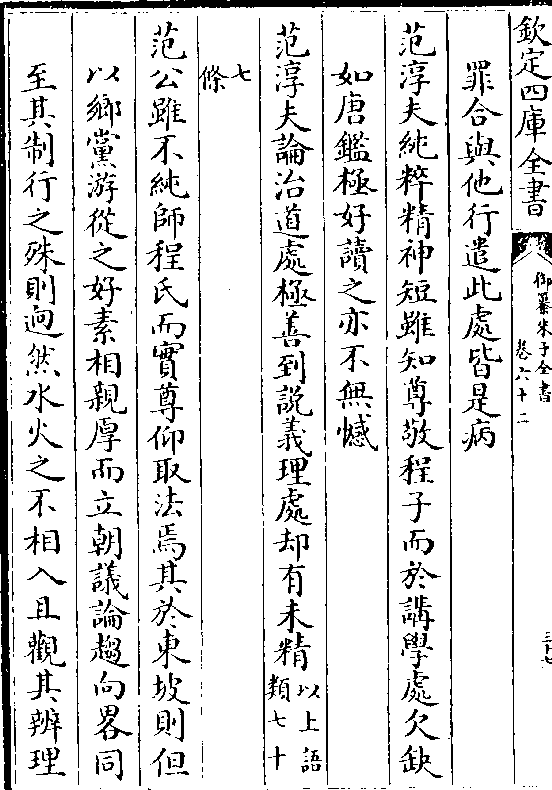 欽定四庫全書
御纂朱子全書
卷六十二
三十七
罪合與他行遣此處皆是病
范淳夫純粹精神短雖知尊敬程子而於講學處欠缺
如唐鑑極好讀之亦不無憾
范淳夫論治道處極善到說義理處却有未精以上語類七十
七條
范公雖不純師程氏而實尊仰取法焉其於東坡則但
以鄉黨游從之好素相親厚而立朝議論趨向畧同
至其制行之殊則逈然水火之不相入且觀其辨理